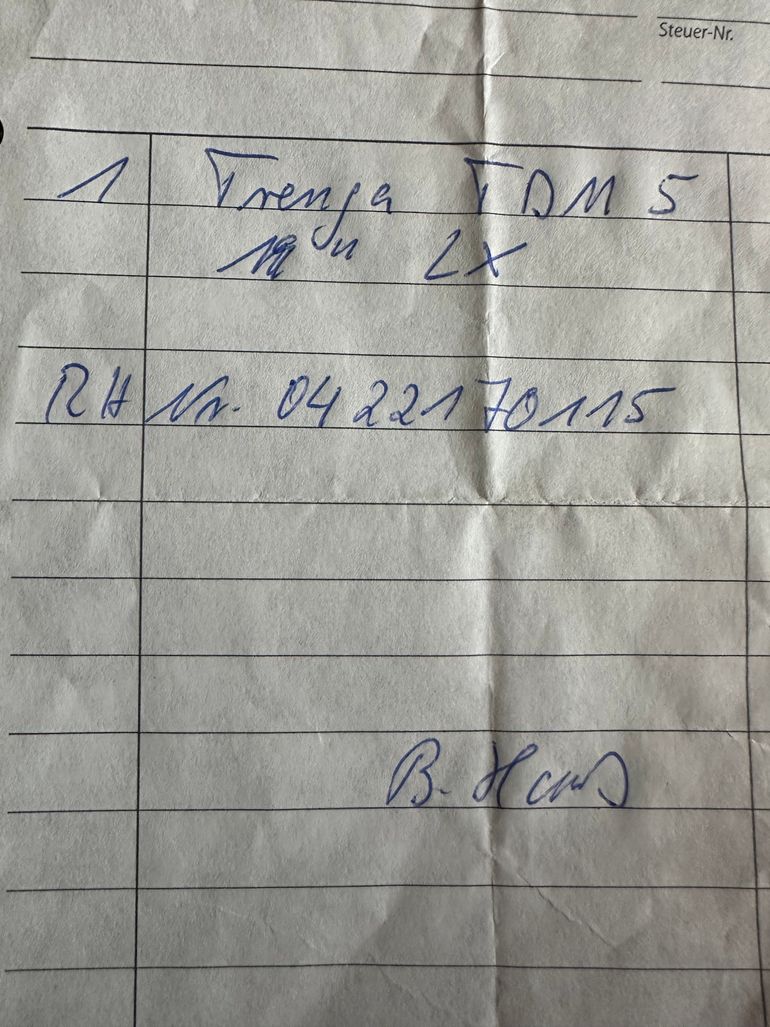 Steuer-Nr.
1 Trenga TDM 5
" LX
RH Nr. 04221170115
B.